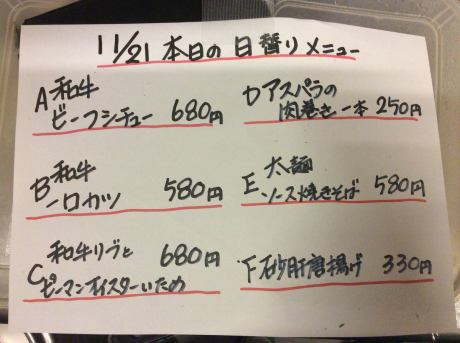 11/21 本日の日替りメニュー
A 和牛
ビーフシチュー 680円
B 和牛
一口カツ 580円
和牛リブと 680円
C ピーマンオイスターいため
D アスパラの
肉巻き一本 250円
E 太麺
ソース焼きそば 580円
F 砂肝唐揚げ 330円